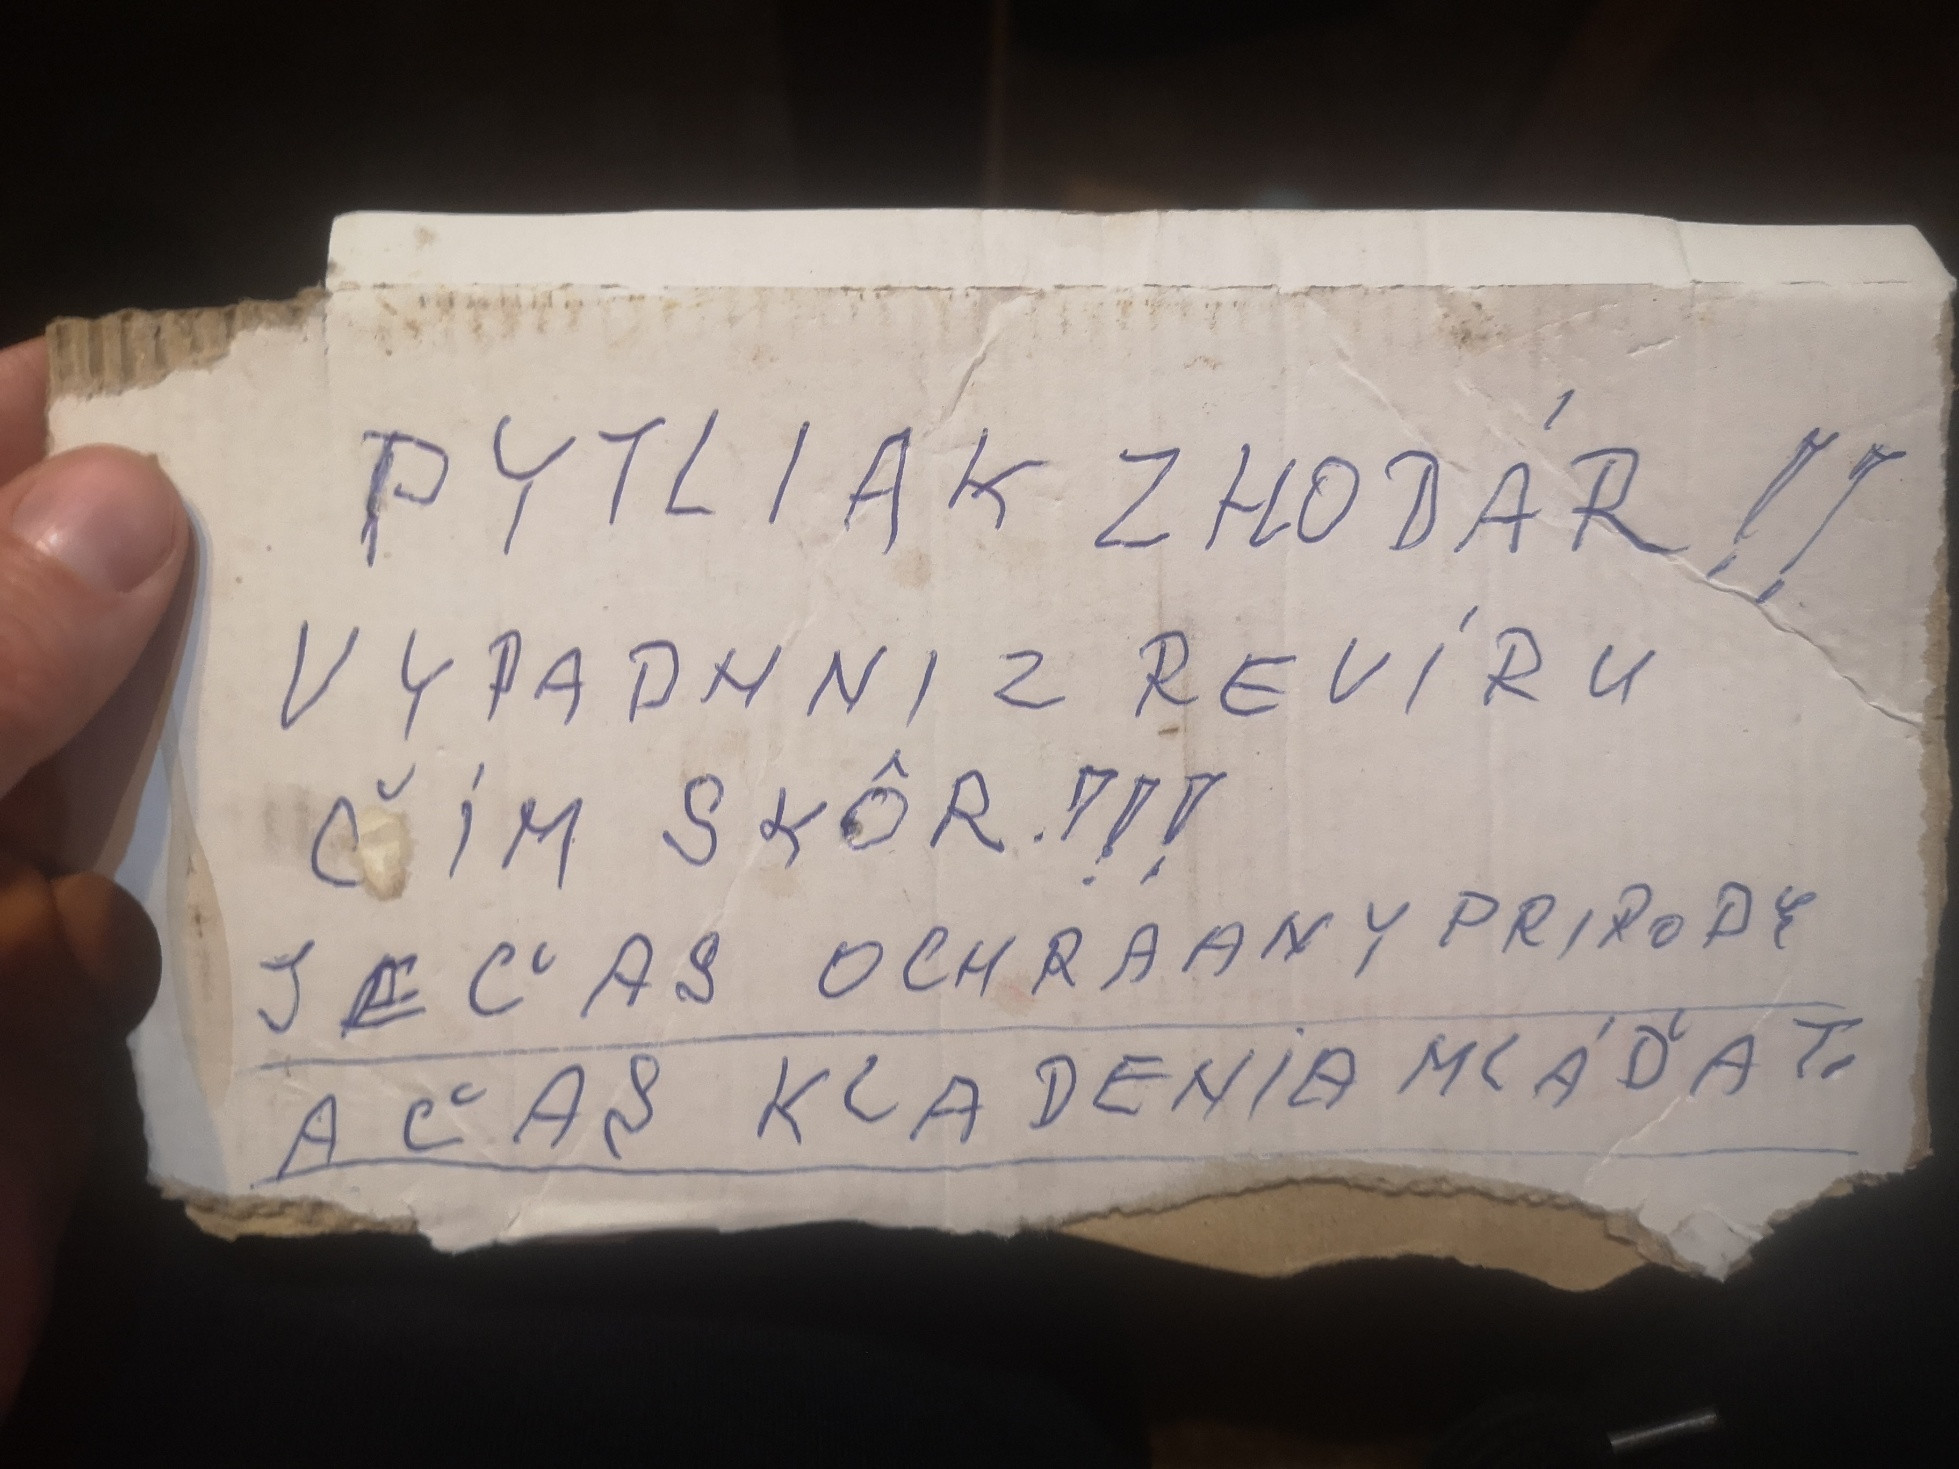 PYTLIAK ZHODÁR!!
VYPADNNI Z REVÍRU
ČÍM SKÔR.!!!
JE ČAS OCHRÁANY PRIRODY
A ČAS KLADENIA MLÁĎAT.